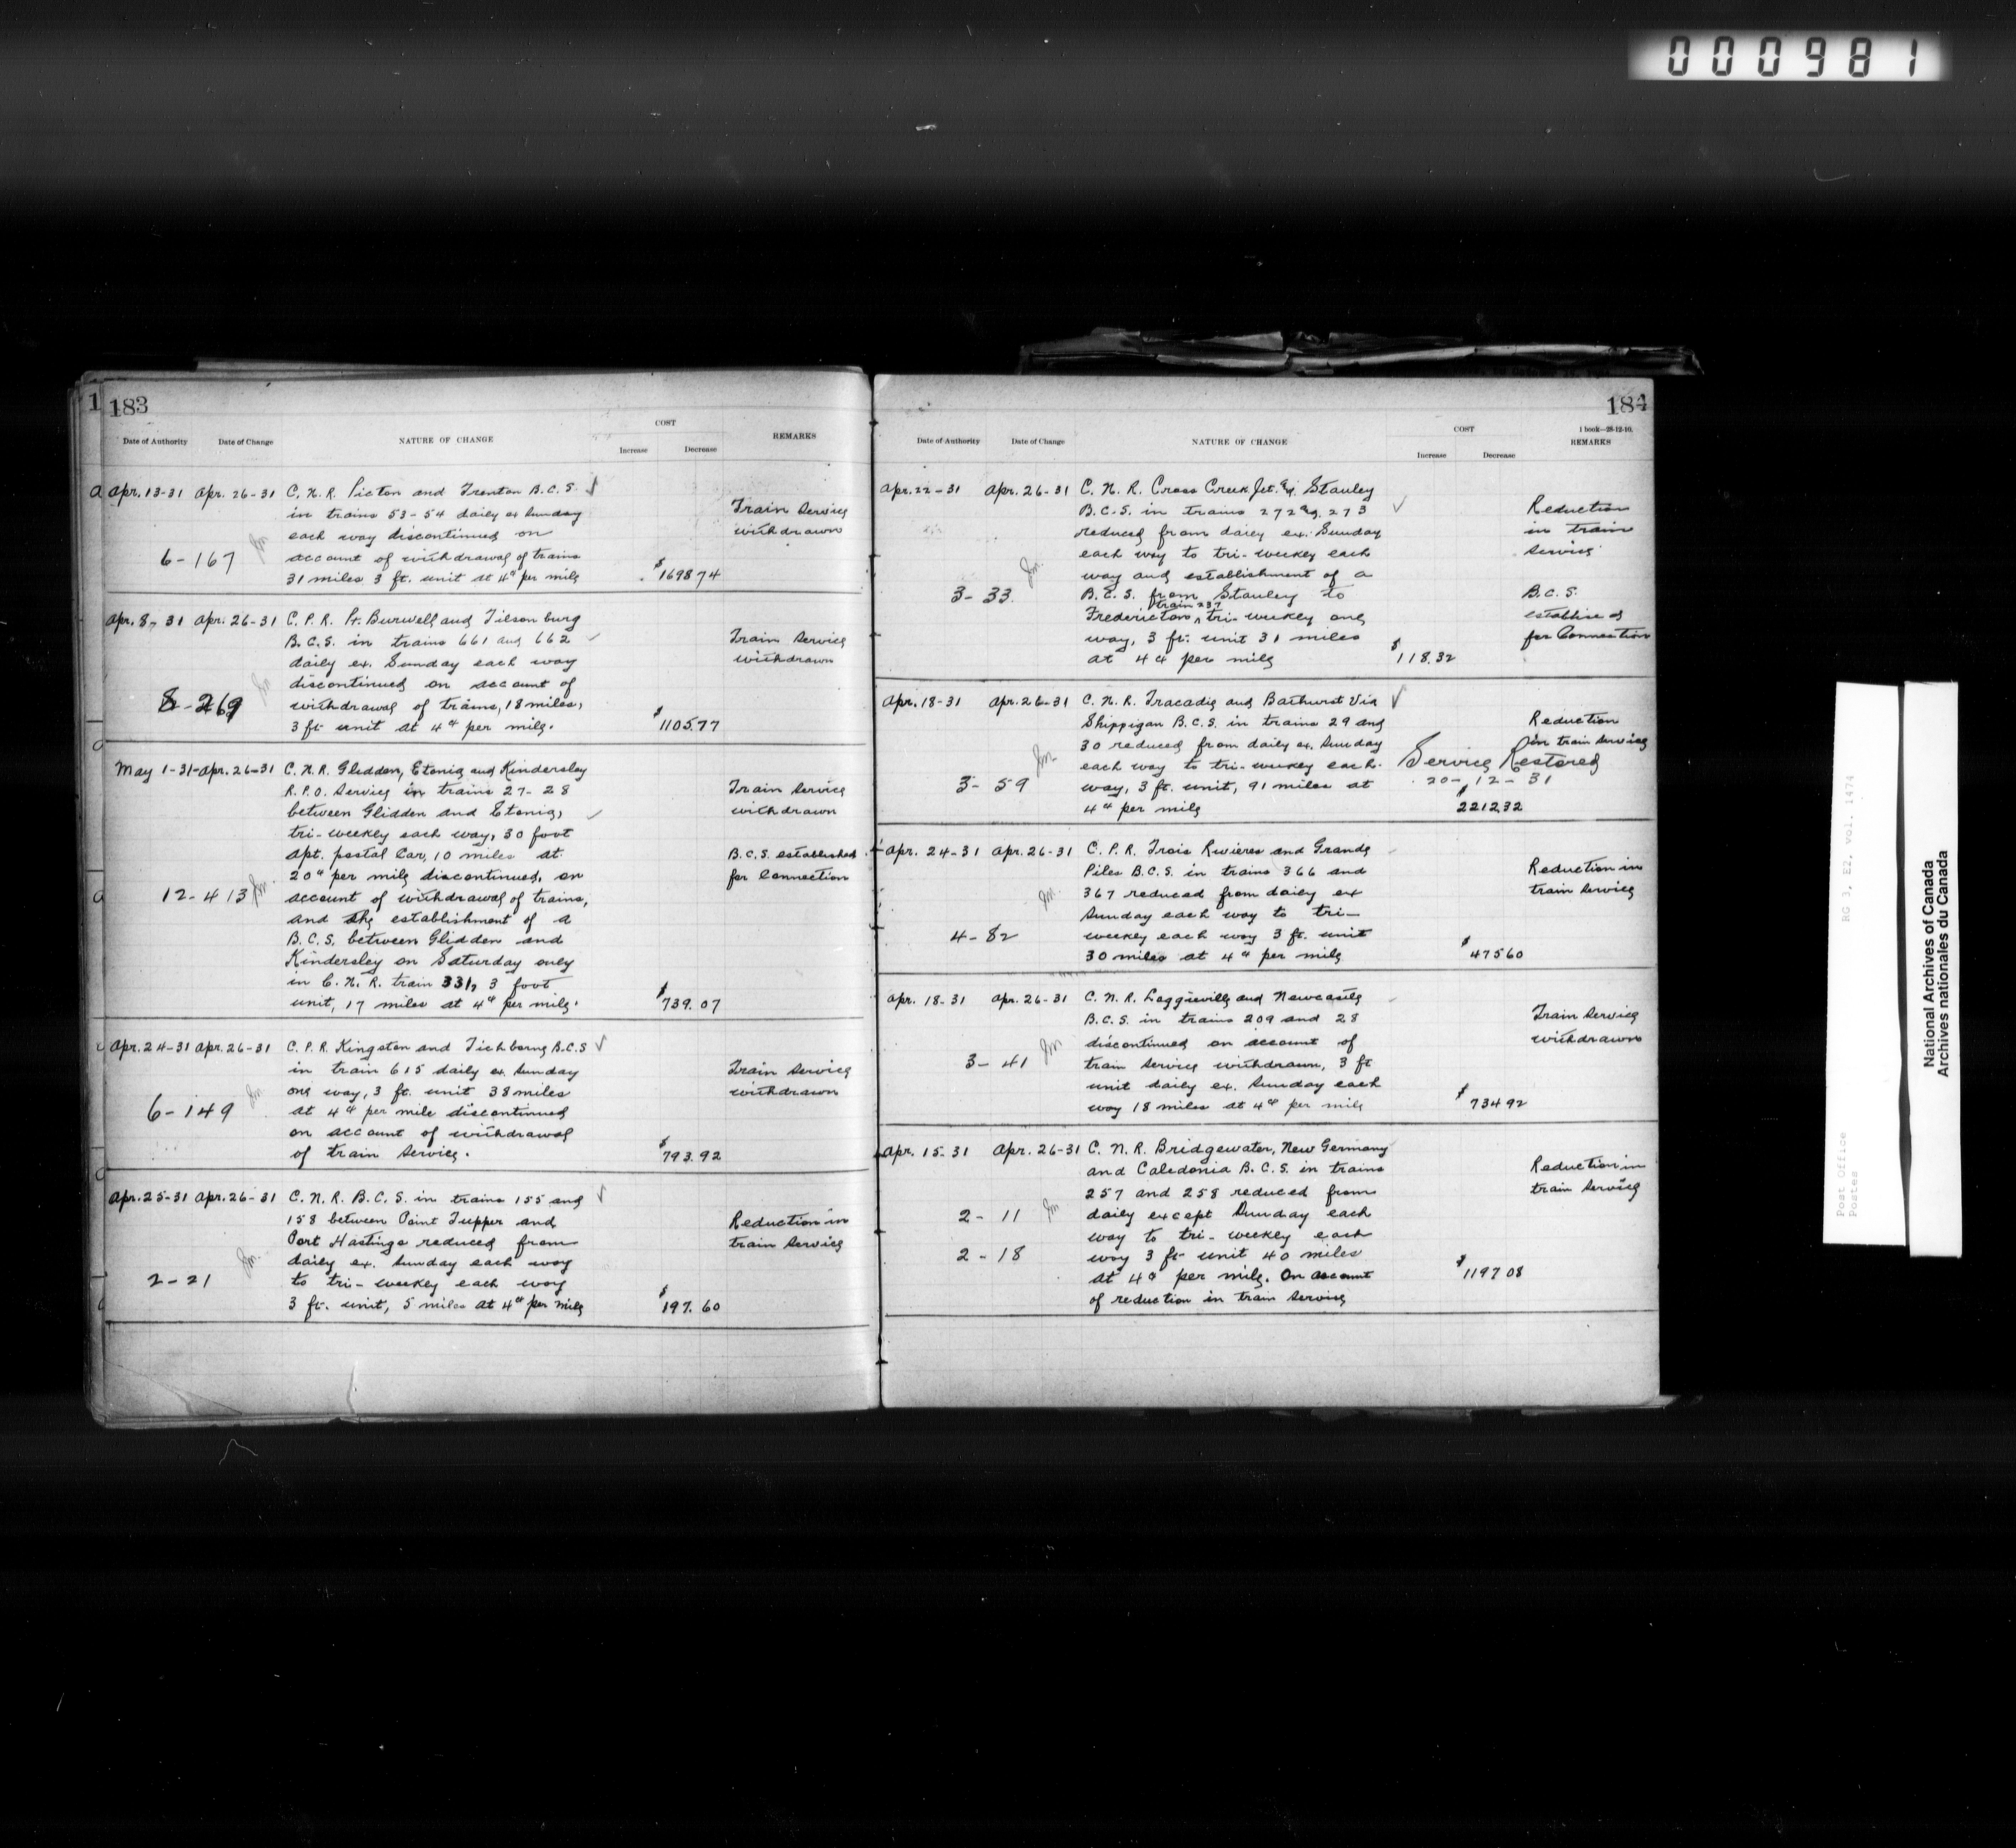 000981
183
COST
Date of Authority Date of Change NATURE OF CHANGE Increase Decrease REMARKS
Apr. 13-31 Apr. 26-31 C. N. R. Picton and Trenton B.C.S. ✓
in trains 53-54 daily ex Sunday
each way discontinued on
account of withdrawal of trains
31 miles 3 ft. unit at 4¢ per mile
6-167
$169874
Train Service
withdrawn
Apr. 8-31 Apr. 26-31 C. P. R. Pt. Burwell and Tilsonburg
B.C.S. in trains 661 and 662
daily ex. Sunday each way
discontinued on account of
withdrawal of trains, 18 miles,
3 ft unit at 4¢ per mile.
8-269
$1105.77
Train Service
withdrawn
May 1-31 - Apr. 26-31 C. N. R. Glidden, Etonia and Kindersley
R.P.O. Service in trains 27-28
between Glidden and Etonia,
tri-weekly each way, 30 foot
apt. postal Car, 10 miles at
20¢ per mile discontinued, on
account of withdrawal of trains,
and the establishment of a
B.C.S. between Glidden and
Kindersley on Saturday only
in C. N. R. train 331, 3 foot
unit, 17 miles at 4¢ per mile.
12-413
$739.07
Train Service
withdrawn
B.C.S. established
for Connection
Apr. 24-31 Apr. 26-31 C. P. R. Kingston and Tichborne B.C.S ✓
in train 615 daily ex Sunday
one way, 3 ft. unit 38 miles
at 4¢ per mile discontinued
on account of withdrawal
of train Service.
6-149
$793.92
Train Service
withdrawn
Apr. 25-31 Apr. 26-31 C. N. R. B. C. S. in trains 155 and ✓
158 between Point Tupper and
Port Hastings reduced from
daily ex. Sunday each way
to tri-weekly each way
3 ft. unit, 5 miles at 4¢ per mile
2-21
$197.60
Reduction in
train Service
184
1 book—28-12-10.
COST
Date of Authority Date of Change NATURE OF CHANGE Increase Decrease REMARKS
Apr. 22-31 Apr. 26-31 C. N. R. Cross Creek Jct. and Stanley
B.C.S. in trains 272 and 273 ✓
reduced from daily ex. Sunday
each way to tri-weekly each
way and establishment of a
B.C.S. from Stanley to
train 237
Fredericton ^ tri-weekly one
way, 3 ft. unit 31 miles
at 4¢ per mile
3-33
$118.32
Reduction
in train
Service
B.C.S.
established
for Connection
Apr. 18-31 Apr. 26-31 C. N. R. Tracadie and Bathurst Via ✓
Shippigan B.C.S. in trains 29 and
30 reduced from daily ex. Sunday
each way to tri-weekly each
way, 3 ft. unit, 91 miles at
4¢ per mile
3-59
Service Restored
20-12-31
$221232
Reduction
in train Service
Apr. 24-31 Apr. 26-31 C. P. R. Trois Rivieres and Grande
Piles B.C.S. in trains 366 and
367 reduced from daily ex
Sunday each way to tri-
weekly each way 3 ft. unit
30 miles at 4¢ per mile
4-82
$47560
Reduction in
train Service
Apr. 18-31 Apr. 26-31 C. N. R. Loggieville and Newcastle
B.C.S. in trains 209 and 28
discontinued on account of
train Service withdrawn, 3 ft
unit daily ex. Sunday each
way 18 miles at 4¢ per mile
3-41
$73492
Train Service
withdrawn
Apr. 15-31 Apr. 26-31 C. N. R. Bridgewater, New Germany
and Caledonia B.C.S. in trains
257 and 258 reduced from
daily except Sunday each
way to tri-weekly each
way 3 ft unit 40 miles
at 4¢ per mile. On account
of reduction in train Service
2-11
2-18
$119708
Reduction in
train Service
Post Office RG 3, E2, vol. 1474
Postes
National Archives of Canada
Archives nationales du Canada